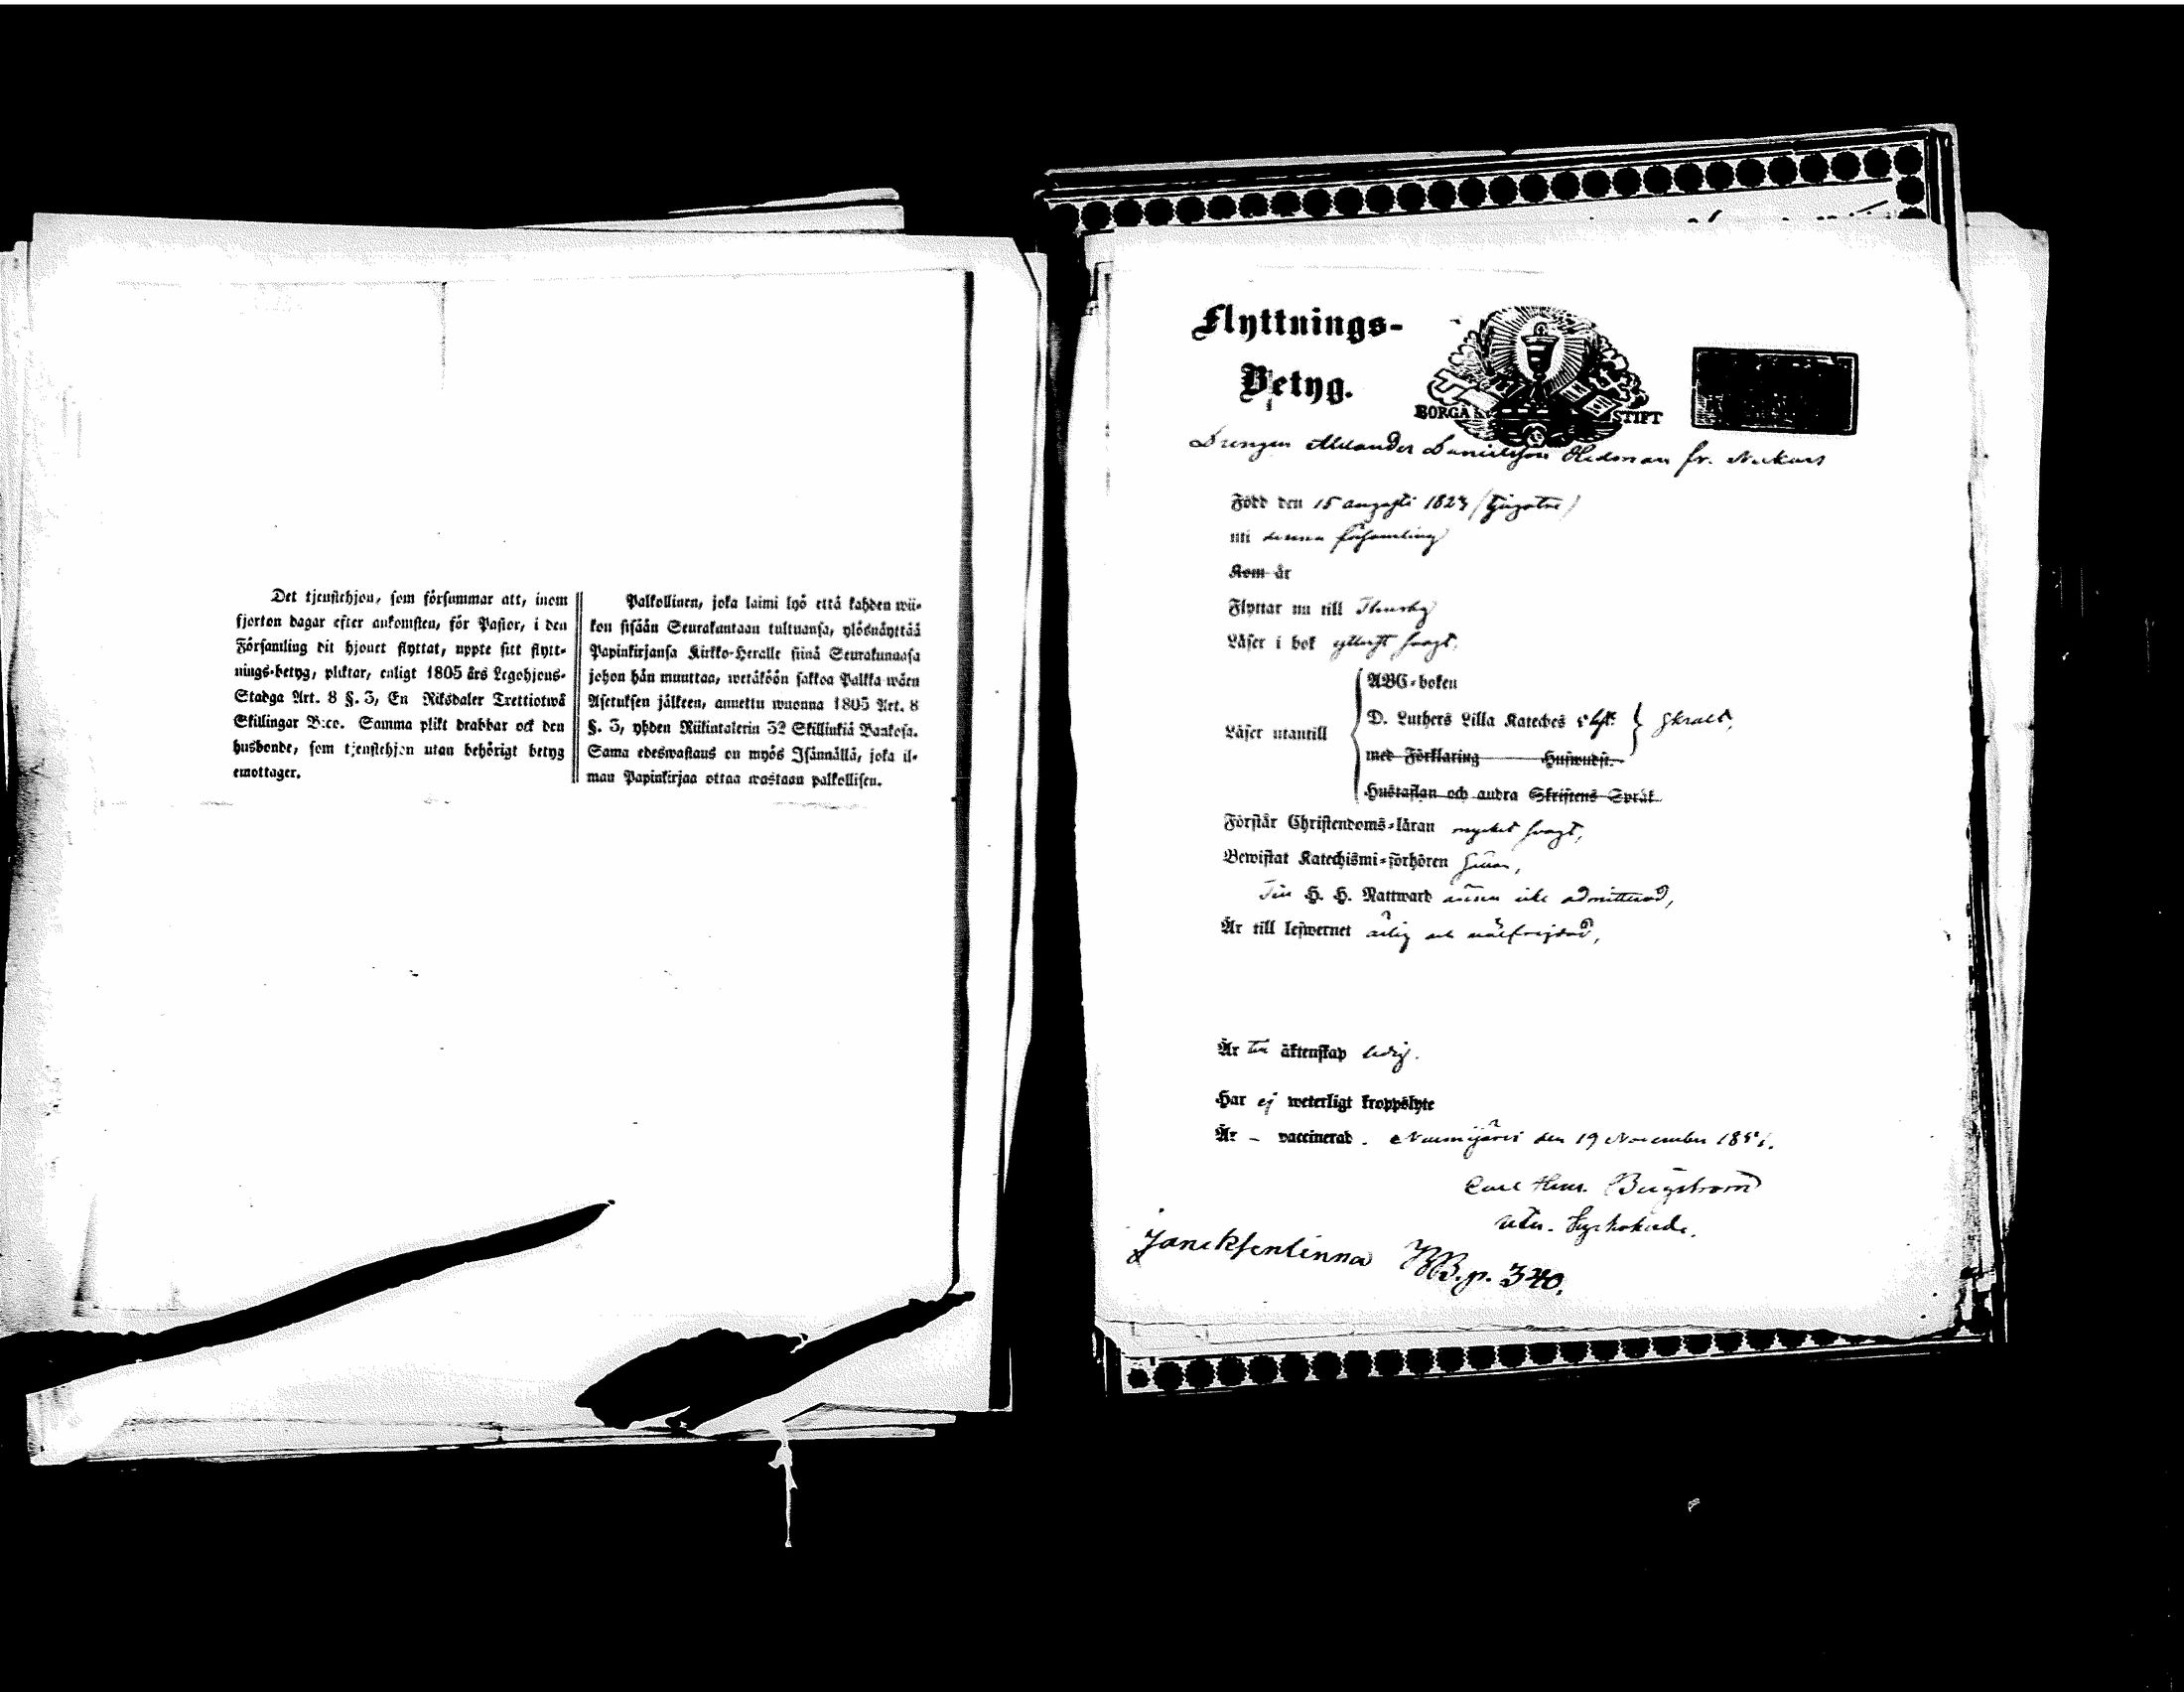 Det tjenstehjon, som försummar att, inom
fjorton dagar efter ankomsten, för Pastor, i den
Församling dit hjonet flyttat, uppte sitt flytt-
nings-betyg, pliktar, enligt 1805 års Legohjons-
Stadga Art. 8 §. 3, En Riksdaler Trettiotwå
Skillingar B:co. Samma plikt drabbar ock den
husbonde, som tjenstehjon utan behörigt betyg
emottager.
Palkollinen, joka laimi lyö että kahden wii-
kon sisään Seurakuntaan tultuansa, ylösnäyttää
Papinkirjansa Kirkko-Herralle siinä Seurakunnasa
johon hän muuttaa, wetäköön sakkoa Palkka-wäen
Asetuksen jälkeen, annettu wuonna 1805 Art. 8
§. 3, yhden Riikintalerin 32 Skillinkiä Bankosa.
Sama edeswastaus on myös Isännällä, joka il-
man Papinkirjaa ottaa wastaan palkollisen.
Flyttnings-
Betyg.
BORGÅ STIFT
Drengen Alexander Danielsson Hedman fr. Nackars
Född den 15 augusti 182
uti denna församling
Kom år
Flyttar nu till Thusby
Läser i bok ytterst swagt.
ABC-boken
D. Luthers Lilla Kateches
Läser utantill
med Förklaring Huswudst.
Hustaflan och andra Skriftens Språk
Förstår Christendoms-läran mycket swagt,
Bewistat Katechismi-förhören
Till H. H. Nattward ännu icke admitterad,
Är till lefwernet ärlig och wälfrejdad,
Är till äktenskap ledig.
Har ej weterligt kroppslyte
Är – vaccinerad. Nurmijärvi den 19 November 185
Carl Henr. Bergström
Jancksenlinna KB. p. 340.